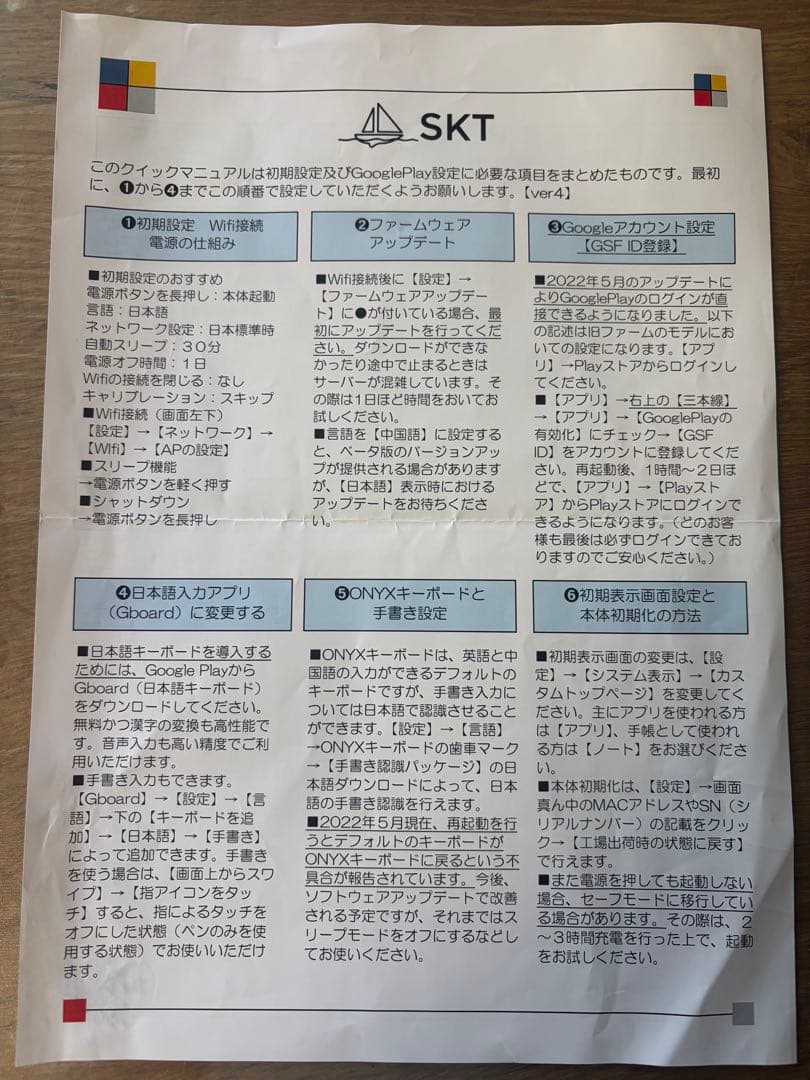 SKT
このクイックマニュアルは初期設定及びGooglePlay設定に必要な項目をまとめたものです。最初
に、❶から❹までこの順番で設定していただくようお願いします。【ver4】
❶初期設定　Wifi接続
電源の仕組み
■初期設定のおすすめ
電源ボタンを長押し：本体起動
言語：日本語
ネットワーク設定：日本標準時
自動スリープ：３０分
電源オフ時間：１日
Wifiの接続を閉じる：なし
キャリブレーション：スキップ
■Wifi接続（画面左下）
【設定】→【ネットワーク】→
【WIfi】→【APの設定】
■スリープ機能
→電源ボタンを軽く押す
■シャットダウン
→電源ボタンを長押し
❷ファームウェア
アップデート
■Wifi接続後に【設定】→
【ファームウェアアップデー
ト】に●が付いている場合、最
初にアップデートを行ってくだ
さい。ダウンロードができな
かったり途中で止まるときは
サーバーが混雑しています。そ
の際は1日ほど時間をおいてお
試しください。
■言語を【中国語】に設定する
と、ベータ版のバージョンアッ
プが提供される場合があります
が、【日本語】表示時における
アップデートをお待ちくださ
い。
❸Googleアカウント設定
【GSF ID登録】
■2022年5月のアップデートに
よりGooglePlayのログインが直
接できるようになりました。以下
の記述は旧ファームのモデルにお
いての設定になります。【アプ
リ】→Playストアからログインし
てください。
■【アプリ】→右上の【三本線】
→【アプリ】→【GooglePlayの
有効化】にチェック→【GSF
ID】をアカウントに登録してくだ
さい。再起動後、1時間～２日ほ
どで、【アプリ】→【Playスト
ア】からPlayストアにログインで
きるようになります。（どのお客
様も最後は必ずログインできてお
りますのでご安心ください。）
❹日本語入力アプリ
（Gboard）に変更する
■日本語キーボードを導入する
ためには、Google Playから
Gboard（日本語キーボード）
をダウンロードしてください。
無料かつ漢字の変換も高性能で
す。音声入力も高い精度でご利
用いただけます。
■手書き入力もできます。
【Gboard】→【設定】→【言
語】→下の【キーボードを追
加】→【日本語】→【手書き】
によって追加できます。手書き
を使う場合は、【画面上からスワ
イプ】→【指アイコンをタッ
チ】すると、指によるタッチを
オフにした状態（ペンのみを使
用する状態）でお使いいただけ
ます。
❺ONYXキーボードと
手書き設定
■ONYXキーボードは、英語と中
国語の入力ができるデフォルトの
キーボードですが、手書き入力に
ついては日本語で認識させること
ができます。【設定】→【言語】
→ONYXキーボードの歯車マーク
→【手書き認識パッケージ】の日
本語ダウンロードによって、日本
語の手書き認識を行えます。
■２022年５月現在、再起動を行
うとデフォルトのキーボードが
ONYXキーボードに戻るという不
具合が報告されています。今後、
ソフトウェアアップデートで改善
される予定ですが、それまではス
リープモードをオフにするなどし
てお使いください。
❻初期表示画面設定と
本体初期化の方法
■初期表示画面の変更は、【設
定】→【システム表示】→【カス
タムトップページ】を変更してく
ださい。主にアプリを使われる方
は【アプリ】、手帳として使われ
る方は【ノート】をお選びくださ
い。
■本体初期化は、【設定】→画面
真ん中のMACアドレスやSN（シ
リアルナンバー）の記載をクリッ
ク→【工場出荷時の状態に戻す】
で行えます。
■また電源を押しても起動しない
場合、セーフモードに移行してい
る場合があります。その際は、２
～３時間充電を行った上で、起動
をお試しください。